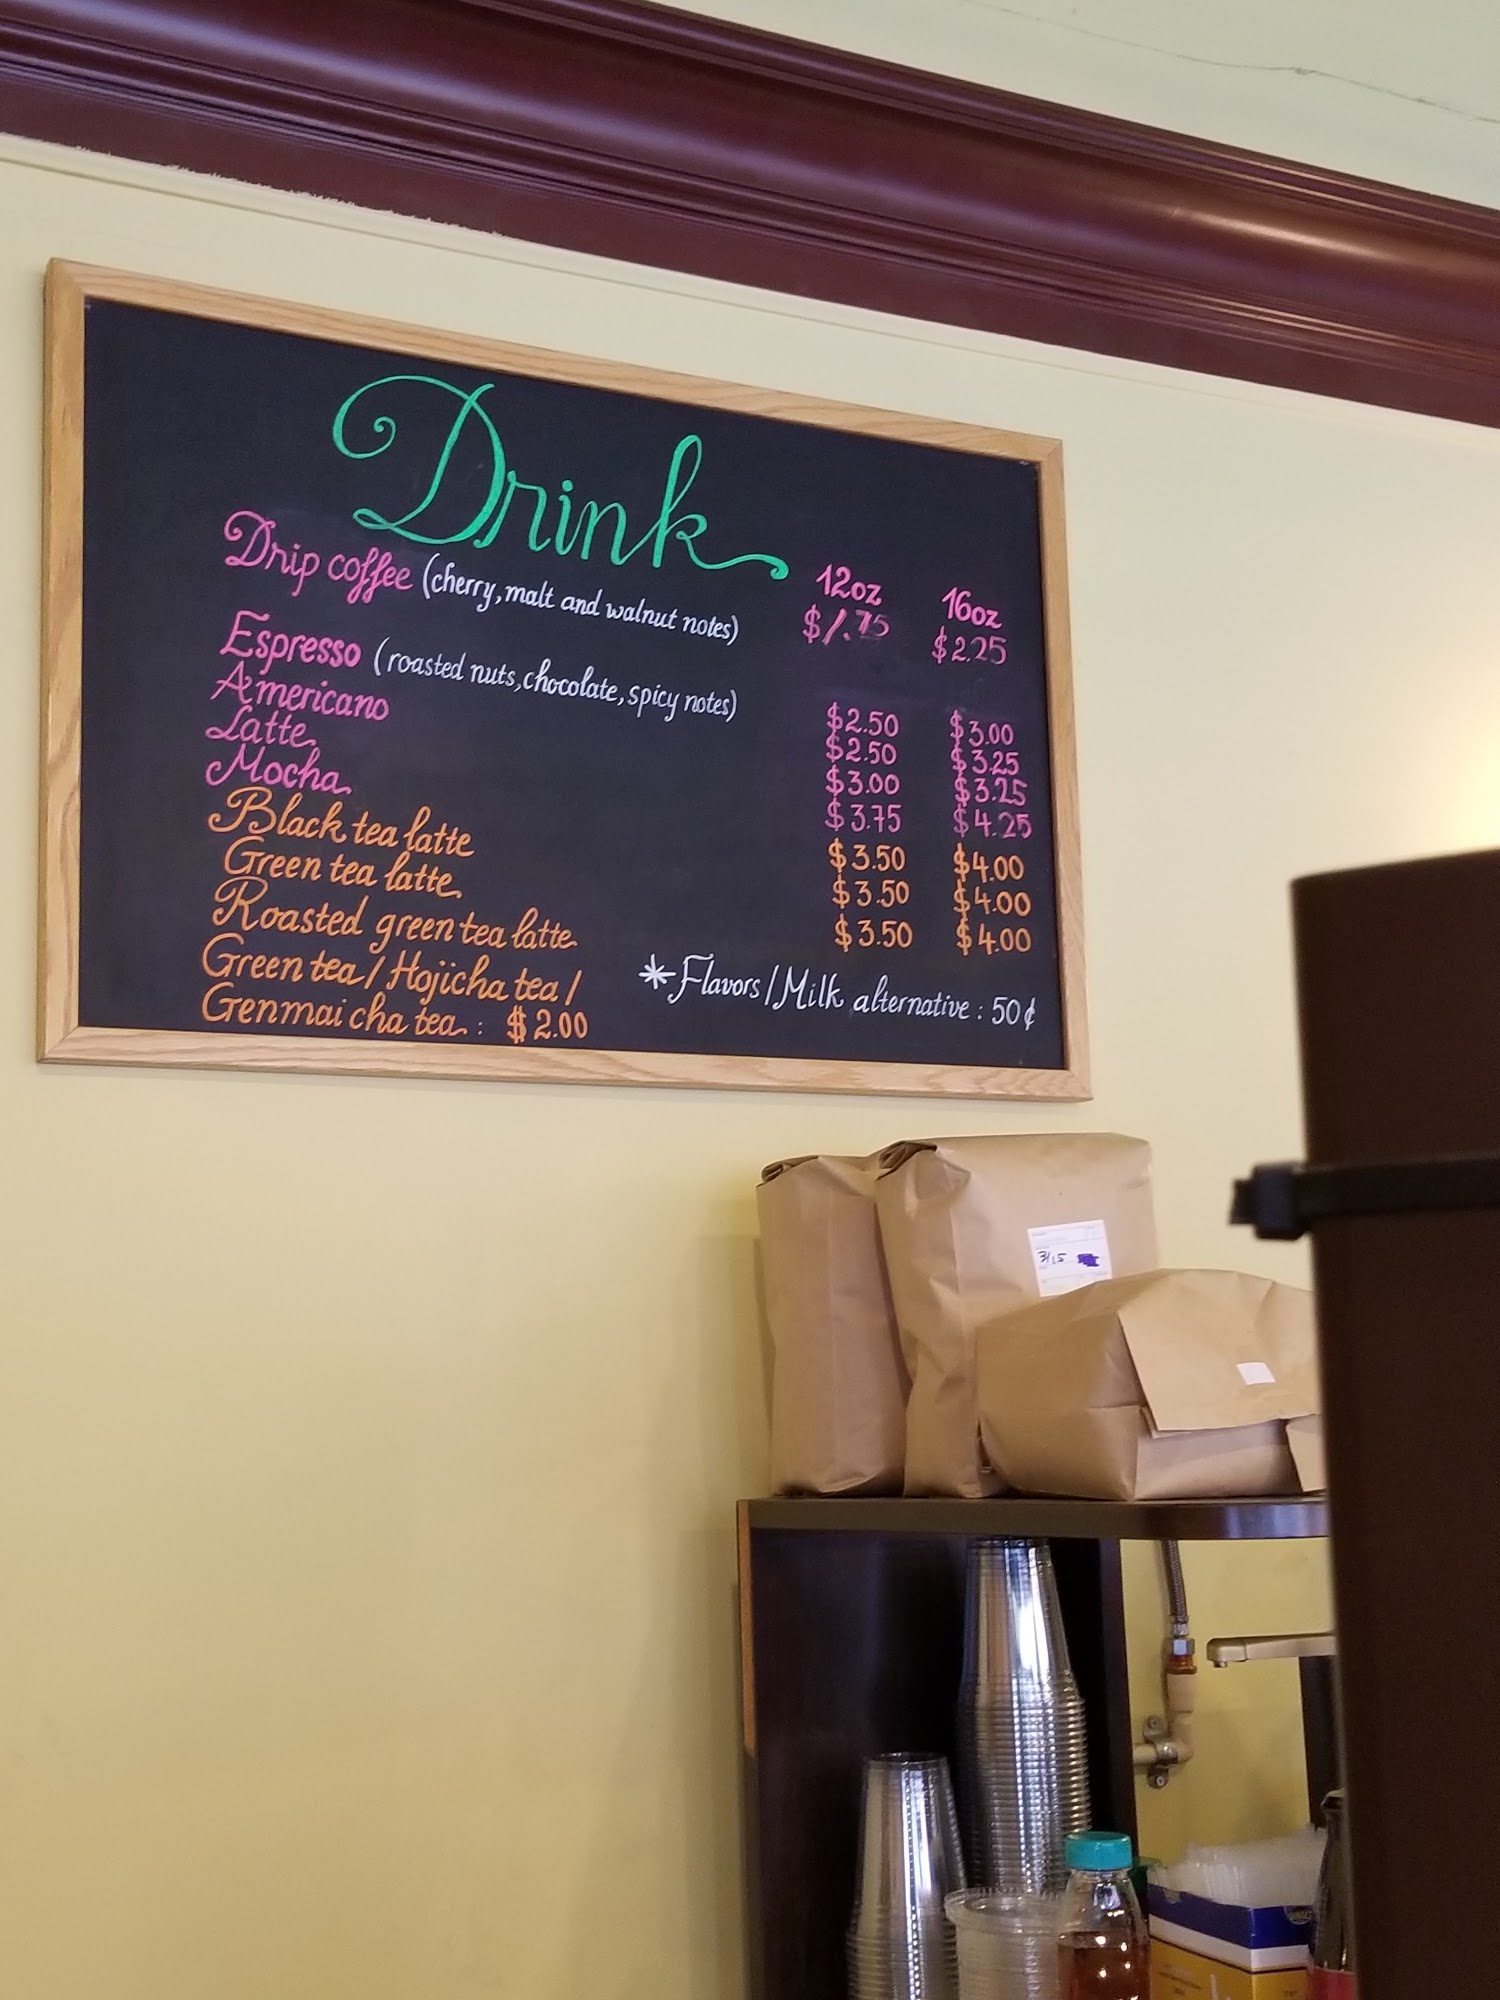 Drink
12oz 16oz
Drip coffee (cherry, malt and walnut notes) $1.75 $2.25
Espresso (roasted nuts, chocolate, spicy notes) $2.50 $3.00
Americano $2.50 $3.25
Latte $3.00 $3.25
Mocha $3.75 $4.25
Black tea latte $3.50 $4.00
Green tea latte $3.50 $4.00
Roasted green tea latte $3.50 $4.00
Green tea / Hojicha tea /
Genmai cha tea : $2.00
*Flavors / Milk alternative : 50¢
3/15